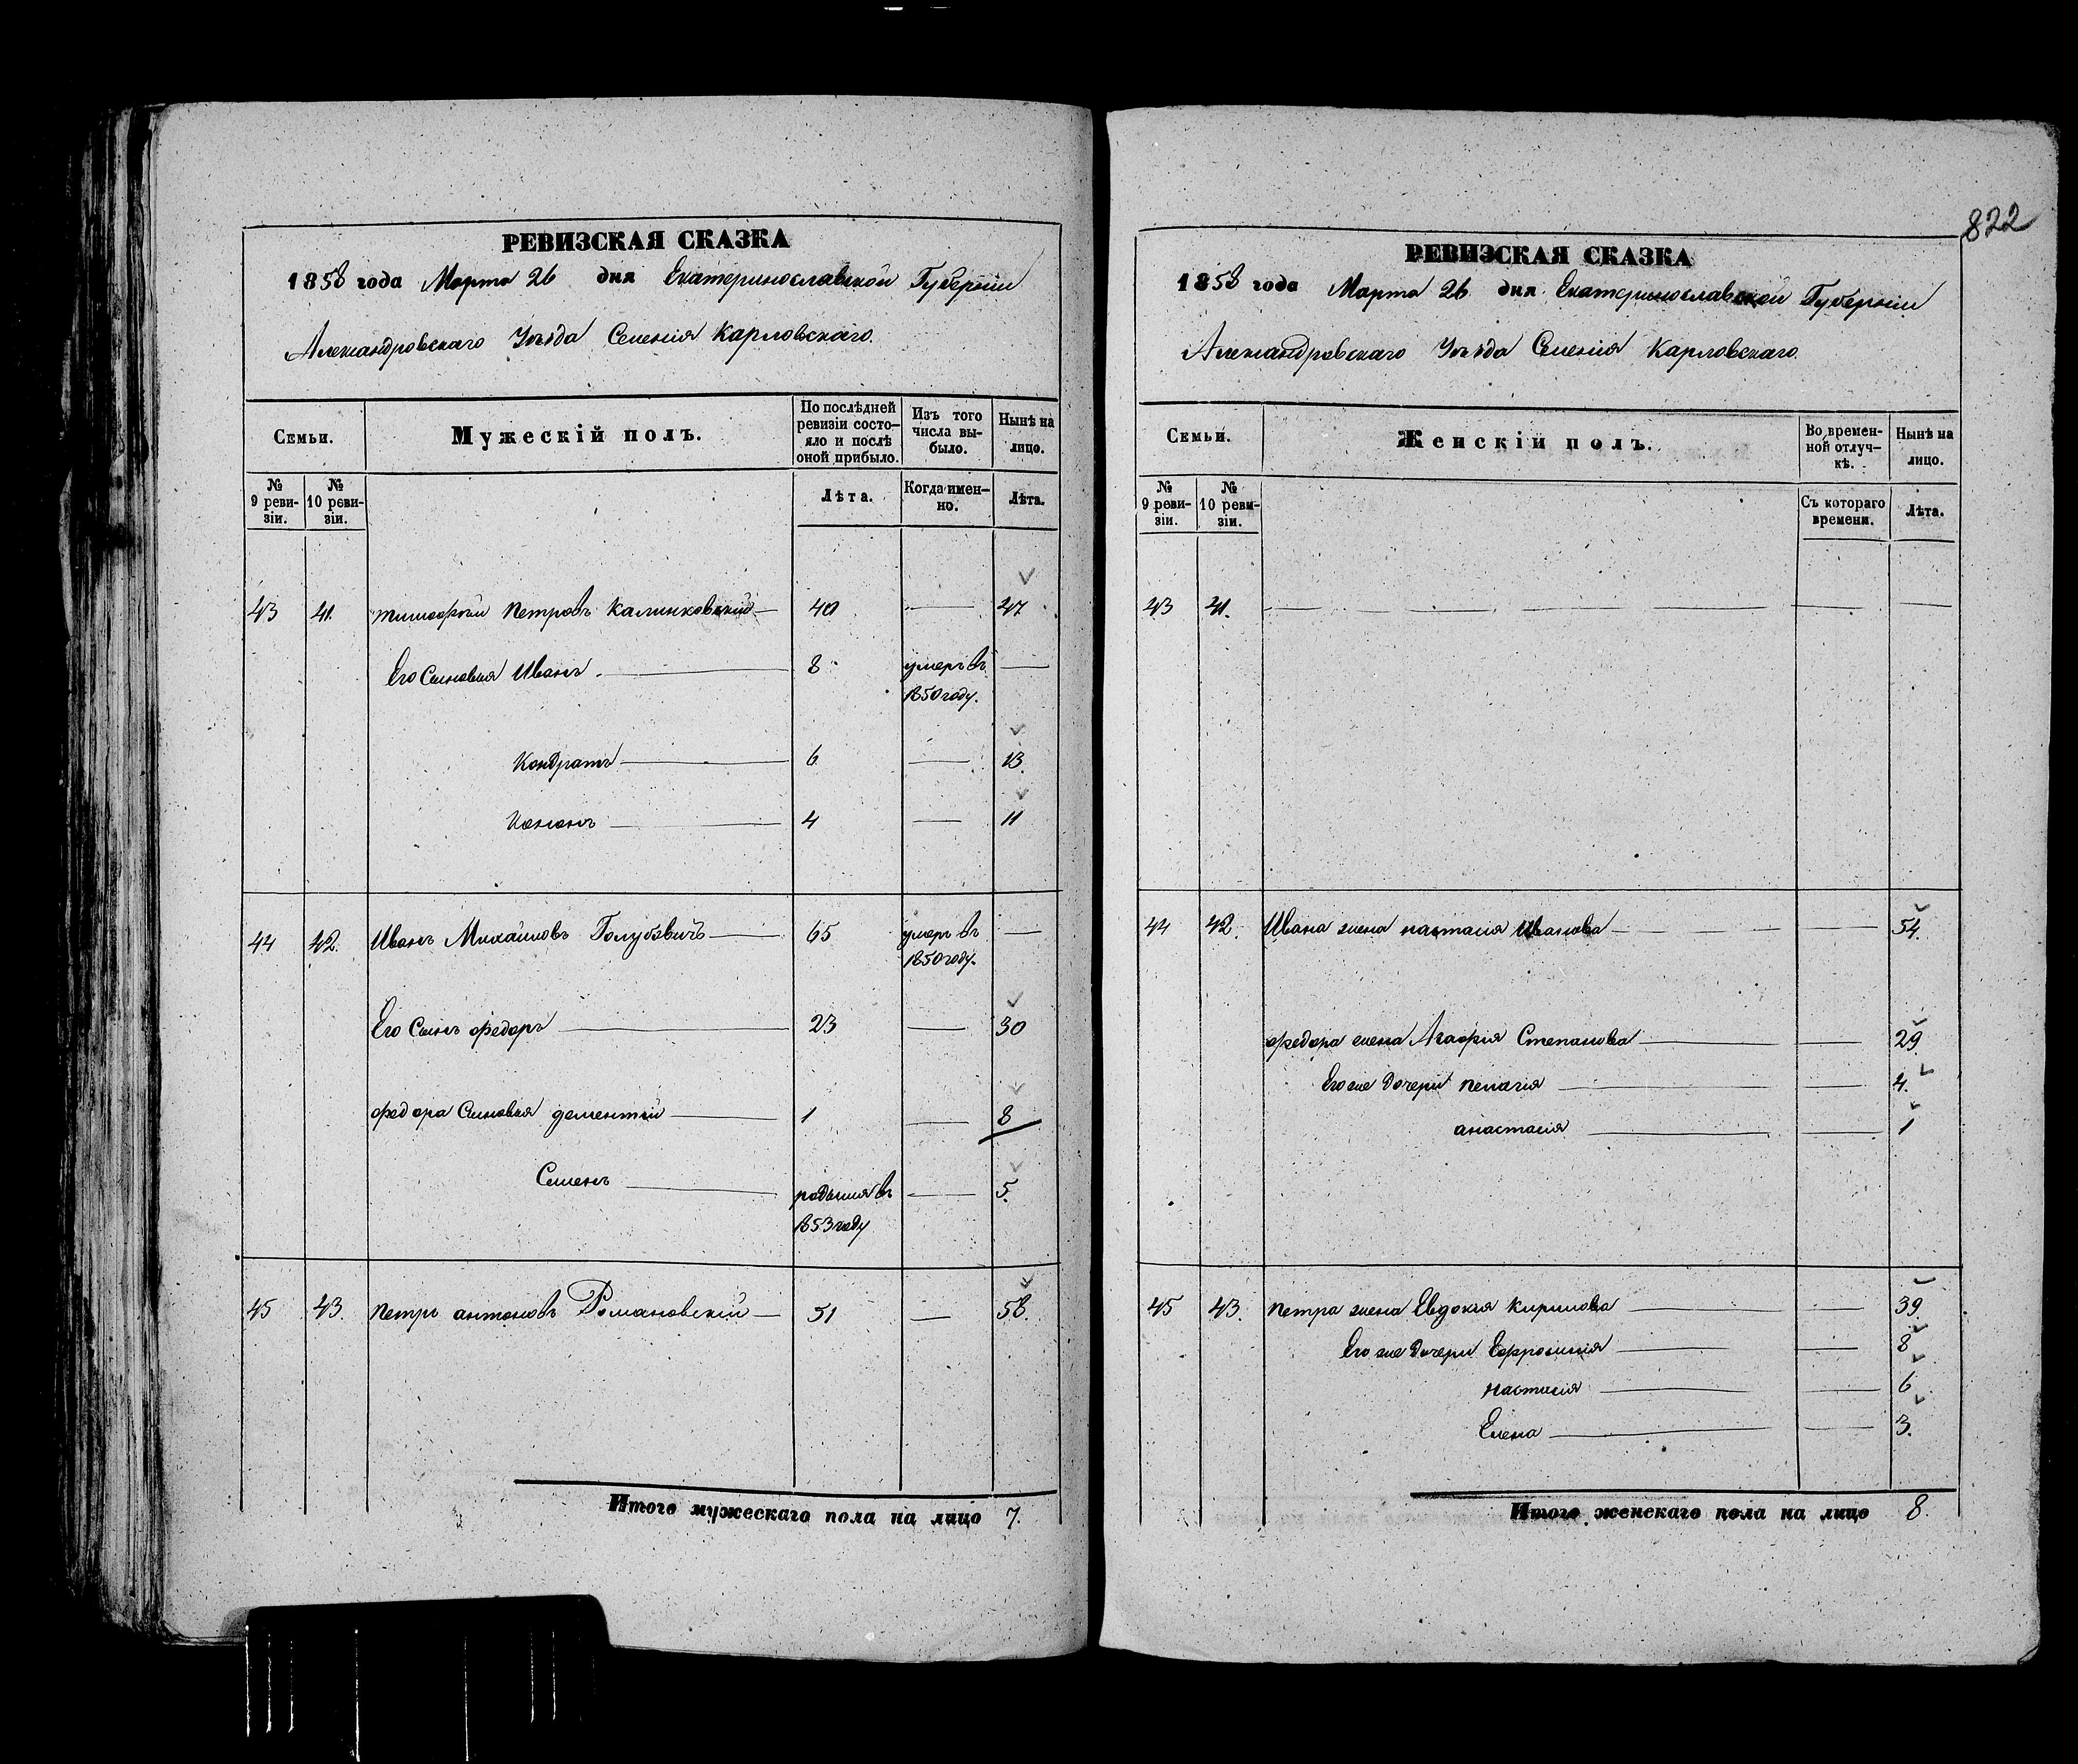 822
РЕВИЗСКАЯ СКАЗКА
1858 года Марта 26 дня Екатеринославской Губернiи
Александровскаго Уѣзда Селенiя Карловскаго.
Семьи.
Мужескiй полъ.
По послѣдней ревизiи состо-
яло и послѣ
оной прибыло.
Изъ того
числа вы-
было.
Нынѣ на
лицо.
№ 9 реви-
зiи.
№ 10 реви-
зiи.
Лѣта.
Когда имен-
но.
Лѣта.
43 41. тимофѣй Петровъ Калинковскiй 40 — 47.
Его Сыновья Иванъ. 8 умеръ въ —
1850 году.
Кондратъ 6 — 13.
Кононъ 4 — 11
44 42. Иванъ Михайловъ Голубовичъ 65 умеръ въ —
1850 году.
Его Сынъ федоръ 23 — 30
федора Сыновья дементiй 1 — 8
Семенъ родился въ — 5.
1853 году
45 43. петръ антоновъ Романовскiй 51 — 58.
Итого мужескаго пола на лицо 7.
РЕВИЗСКАЯ СКАЗКА
1858 года Марта 26 дня Екатеринославской Губернiи
Александровскаго Уѣзда Селенiя Карловскаго.
Семьи.
Женскiй полъ.
Во времен-
ной отлуч-
кѣ.
Нынѣ на
лицо.
№ 9 реви-
зiи.
№ 10 реви-
зiи.
Съ котораго
времени.
Лѣта.
43 41. — — —
44 42. Ивана жена настасiя Иванова — 54.
федора жена Агафiя Степанова — 29.
Его же дочери пелагiя — 4.
анастасiя — 1
45 43. петра жена Евдокiя Кирилова — 39.
Его же дочери Ефросинiя — 8
настасiя — 6
Елена — 3.
Итого женскаго пола на лицо 8.